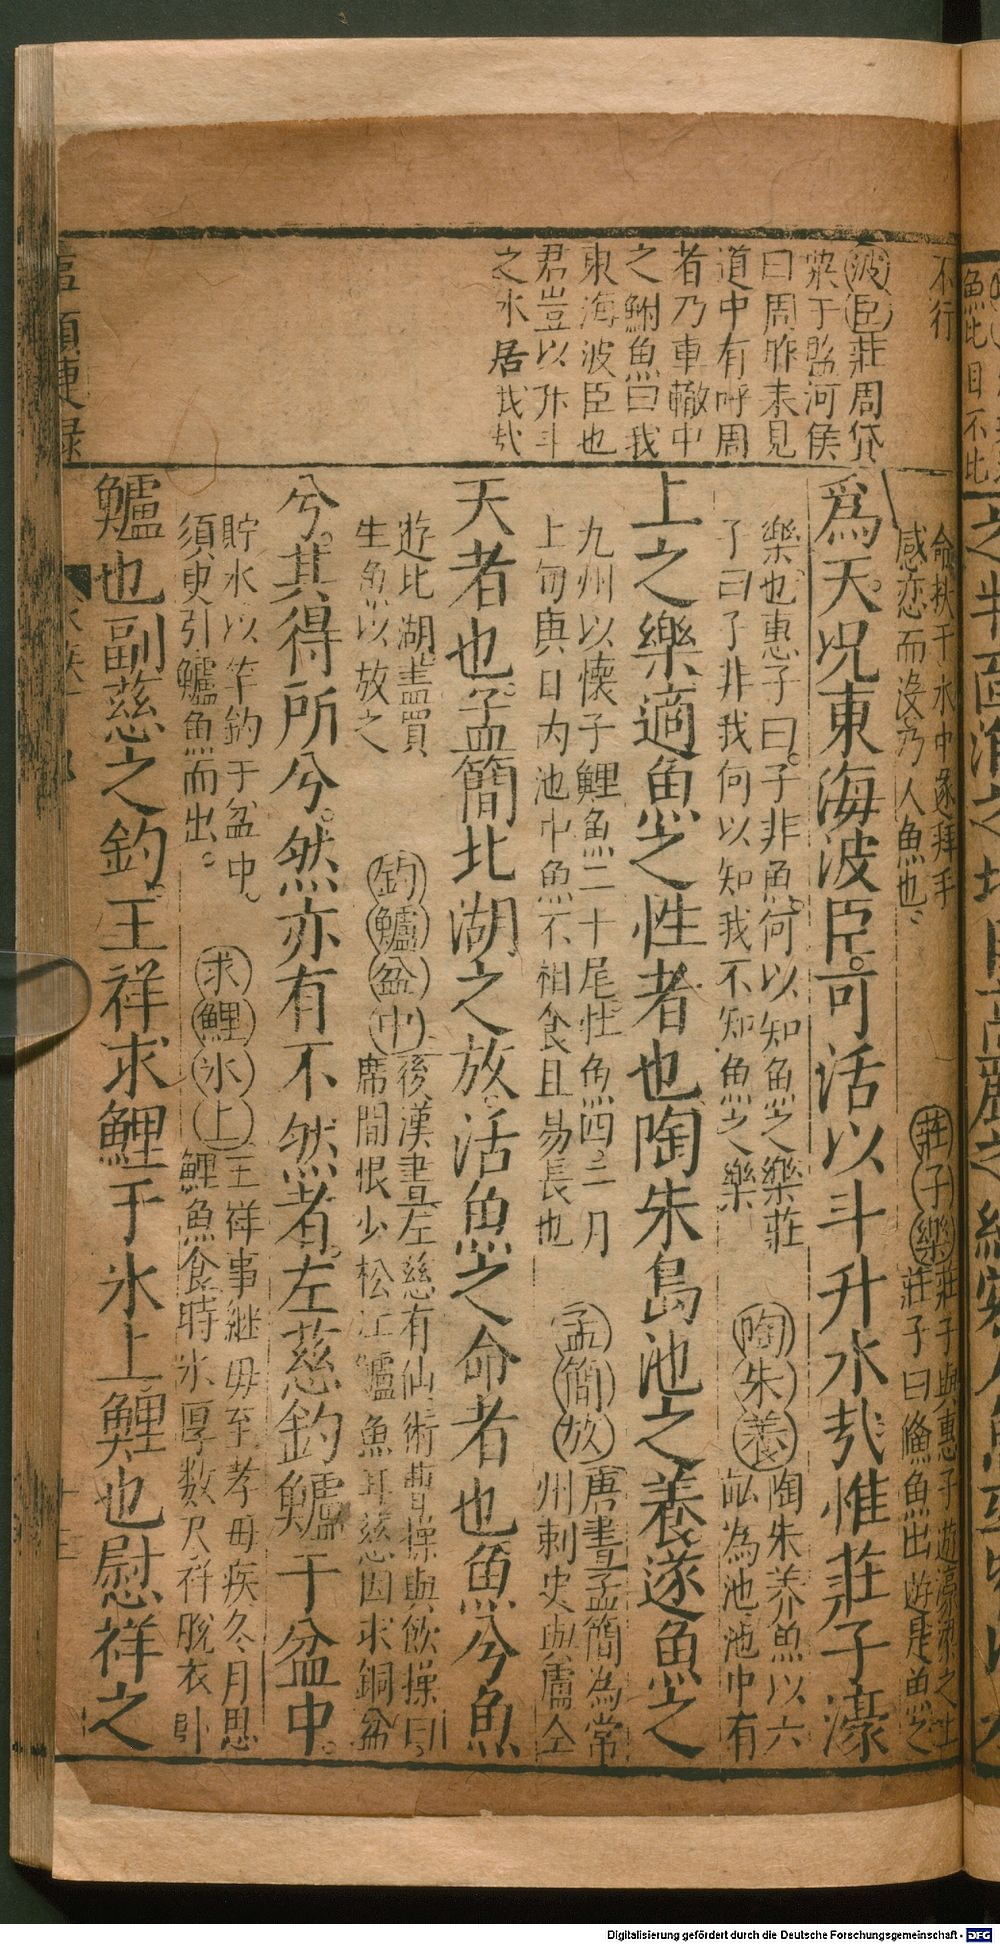 不行
波臣莊周貸
粟于監河侯
曰周昨来見
道中有呼周
者乃車轍中
之鮒魚曰我
東海波臣也
君豈以升斗
之水居我哉
命扶于水中遂拜手
感恋而没乃人魚也。
莊子樂莊子與惠子遊濠梁之上
莊子曰鯈魚出遊是魚之
爲天。况東海波臣。可活以斗升水㢤惟莊子濠
樂也惠子曰。子非魚。何以知魚之樂莊
子曰子非我何以知我不知魚之樂
陶朱養陶朱养魚以六
畒為池池中有
上之樂適魚之性者也陶朱島池之養遂魚之
九州以懐子鯉魚二十尾牲魚四二月
上旬庚日内池中魚不相食且易長也
孟簡放唐書孟簡為常
州刺史與盧仝
天者也。孟簡北湖之放。活魚之命者也魚兮魚
遊北湖盡買
生魚以放之
釣鱸盆中後漢書左慈有仙術曹操與飲操曰。
席間恨少松江鱸魚耳慈因求銅盆
兮。其得所兮。然亦有不然者。左慈釣鱸于盆中。
貯水以竿釣于盆中。
須臾引鱸魚而出。
求鯉氷上王祥事継毋至孝毋疾冬月思
鯉魚食時氷厚数尺祥脫衣卧
鱸也副慈之釣。王祥求鯉于氷上鯉也慰祥之
Digitalisierung gefördert durch die Deutsche Forschungsgemeinschaft - DFG